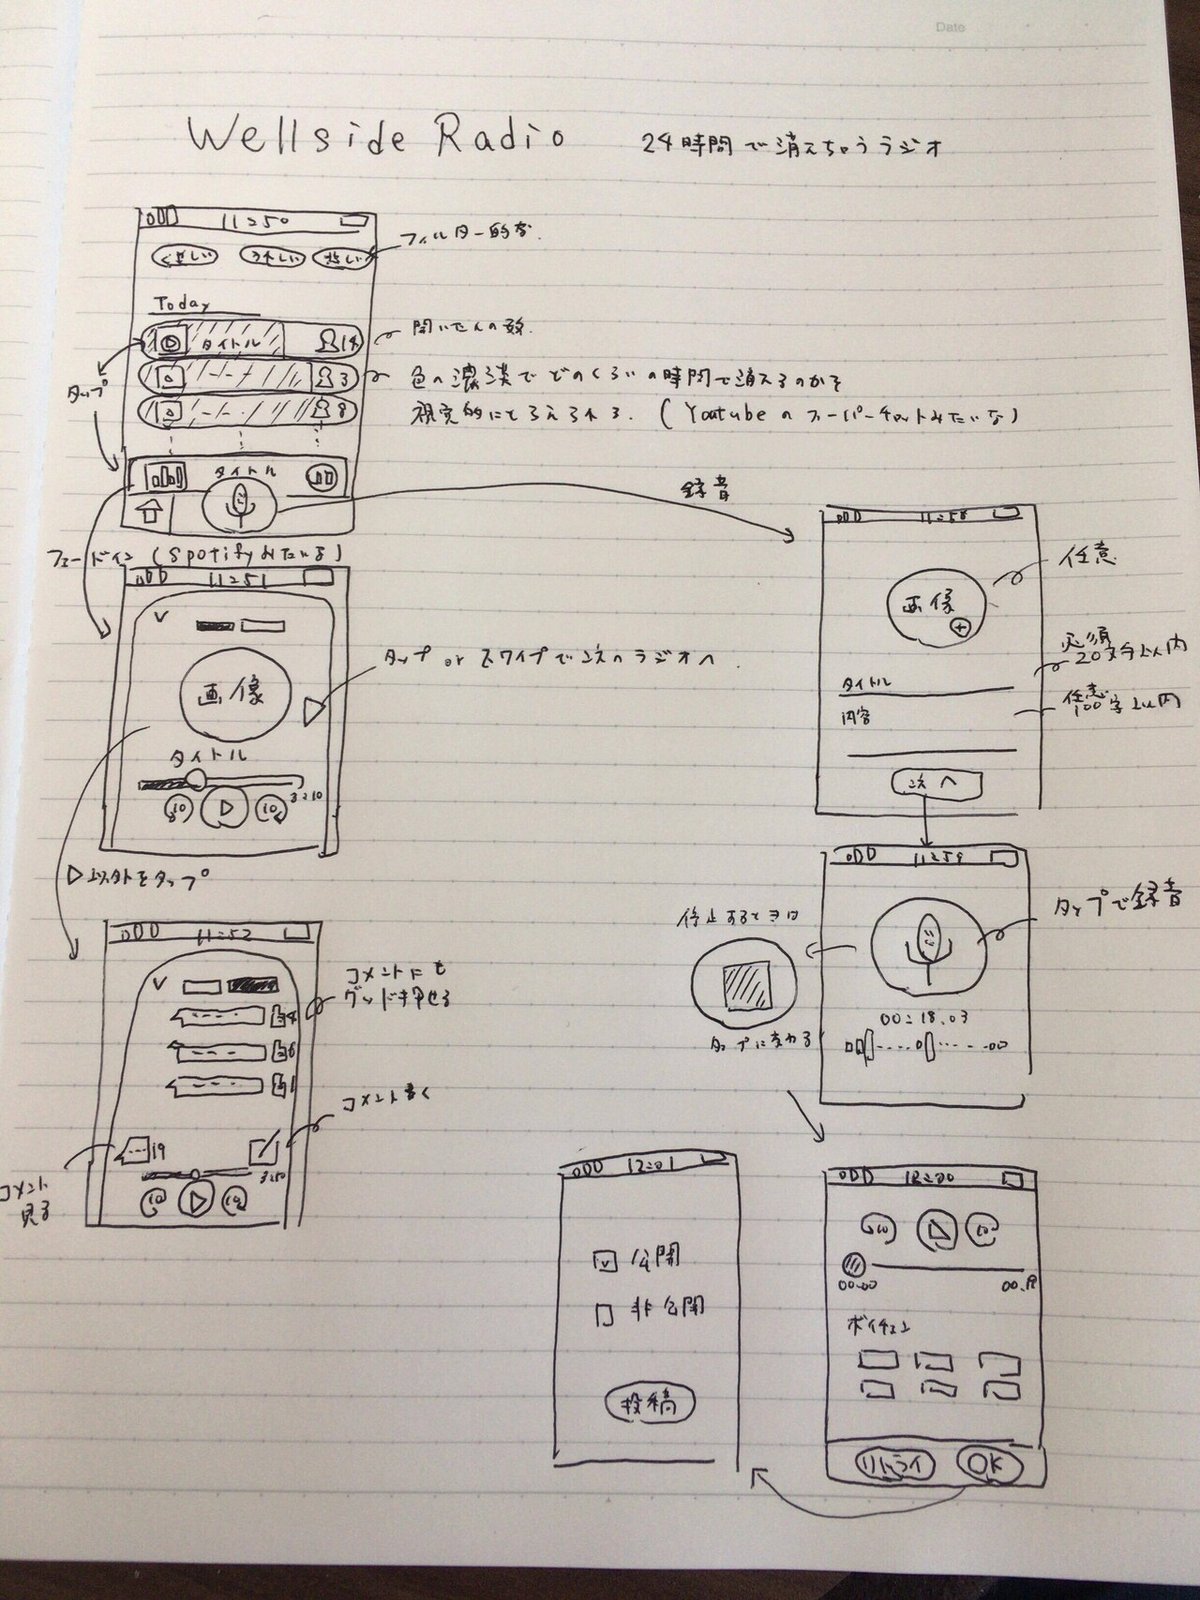 Date
Wellside Radio
24時間で消えちゃうラジオ
11:50
うれしい
悲しい
フィルター的な
Today
タイトル
14
聞いた人の数
3
8
タップ
色の濃淡でどのくらいの時間で消えるのかを
視覚的にとらえられる. (Youtubeのスーパーチャットみたいな)
タイトル
録音
フェードイン (Spotifyみたいな)
11:51
画像
タップ or スワイプで次のラジオへ
タイトル
3:10
10
10
▷以外をタップ
11:52
コメントにも
グッドを押せる
4
6
1
コメント書く
19
コメント
見る
3:10
10
10
11:58
画像
任意
必須
20文字以内
タイトル
任意
100字以内
内容
次へ
11:59
タップで録音
停止するときは
タップに変わる
00:18.03
12:00
10
10
00:00
00:18
ボイチェン
リトライ
OK
12:01
公開
非公開
投稿